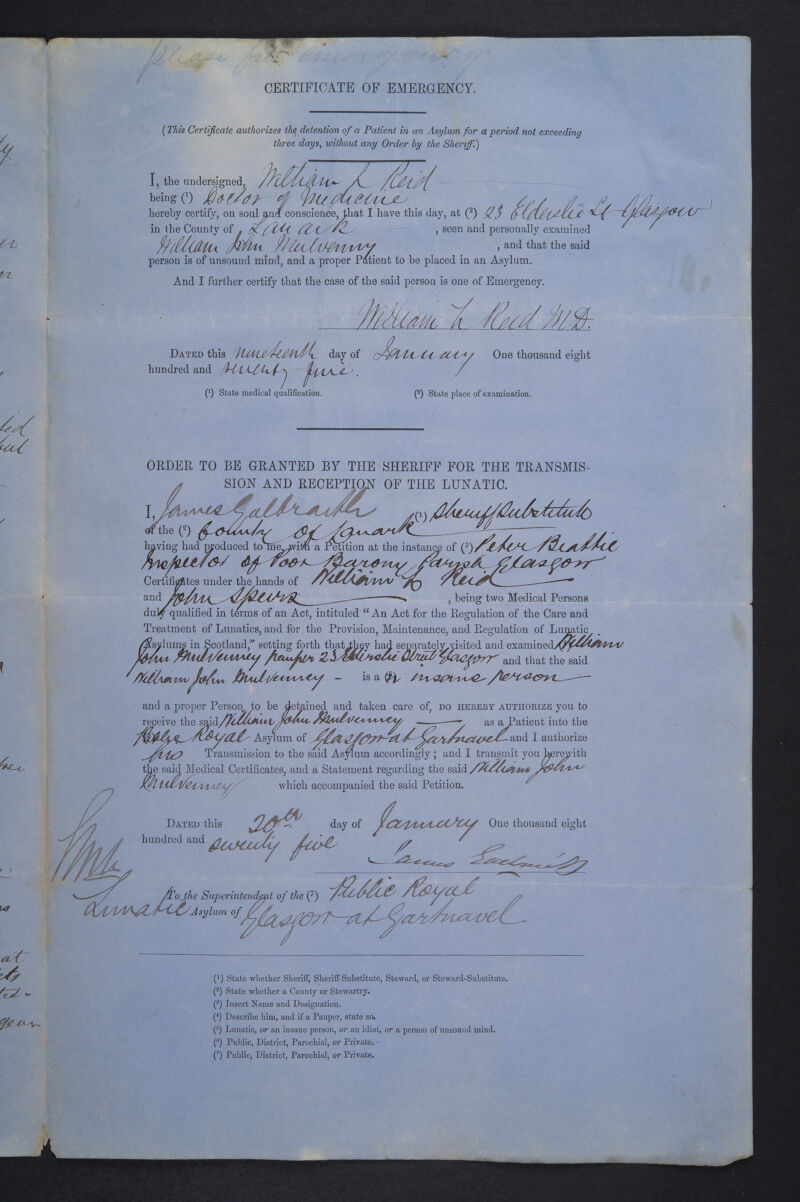 please for emergency
CERTIFICATE OF EMERGENCY.
(This Certificate authorizes the detention of a Patient in an Asylum for a period not exceeding
three days, without any Order by the Sheriff.)
I, the undersigned, William L Reid
being (¹) Doctor of Medicine
hereby certify, on soul and conscience, that I have this day, at (²) 23 Elderslie St Glasgow
in the County of Lanark, seen and personally examined
William John Mulvenny, and that the said
person is of unsound mind, and a proper Patient to be placed in an Asylum.
And I further certify that the case of the said person is one of Emergency.
William L Reid M.D.
DATED this nineteenth day of January One thousand eight
hundred and seventy five.
(¹) State medical qualification. (²) State place of examination.
ORDER TO BE GRANTED BY THE SHERIFF FOR THE TRANSMIS-
SION AND RECEPTION OF THE LUNATIC.
I, James Galbraith (¹) Sheriff Substitute
of the (²) County of Lanark
having had produced to me, with a Petition at the instance of (³) Peter Beattie
Inspector of Poor Barony Parish Glasgow
Certificates under the hands of William L Reid
and John Speirs, being two Medical Persons
duly qualified in terms of an Act, intituled "An Act for the Regulation of the Care and
Treatment of Lunatics, and for the Provision, Maintenance, and Regulation of Lunatic
Asylums in Scotland," setting forth that they had separately visited and examined William
John Mulvenney pauper 23 Elderslie Street Glasgow and that the said
William John Mulvenney - is a n insane person
and a proper Person to be detained and taken care of, DO HEREBY AUTHORIZE you to
receive the said William John Mulvenney as a Patient into the
Royal Asylum of Glasgow at Gartnavel and I authorize
his Transmission to the said Asylum accordingly; and I transmit you herewith
the said Medical Certificates, and a Statement regarding the said William John
Mulvenney which accompanied the said Petition.
DATED this 20th day of January One thousand eight
hundred and seventy five
James Galbraith
To the Superintendent of the (⁷) Public Royal
Lunatic Asylum of Glasgow at Gartnavel
(¹) State whether Sheriff, Sheriff-Substitute, Steward, or Steward-Substitute.
(²) State whether a County or Stewartry.
(³) Insert Name and Designation.
(⁴) Describe him, and if a Pauper, state so.
(⁵) Lunatic, or an insane person, or an idiot, or a person of unsound mind.
(⁶) Public, District, Parochial, or Private.
(⁷) Public, District, Parochial, or Private.